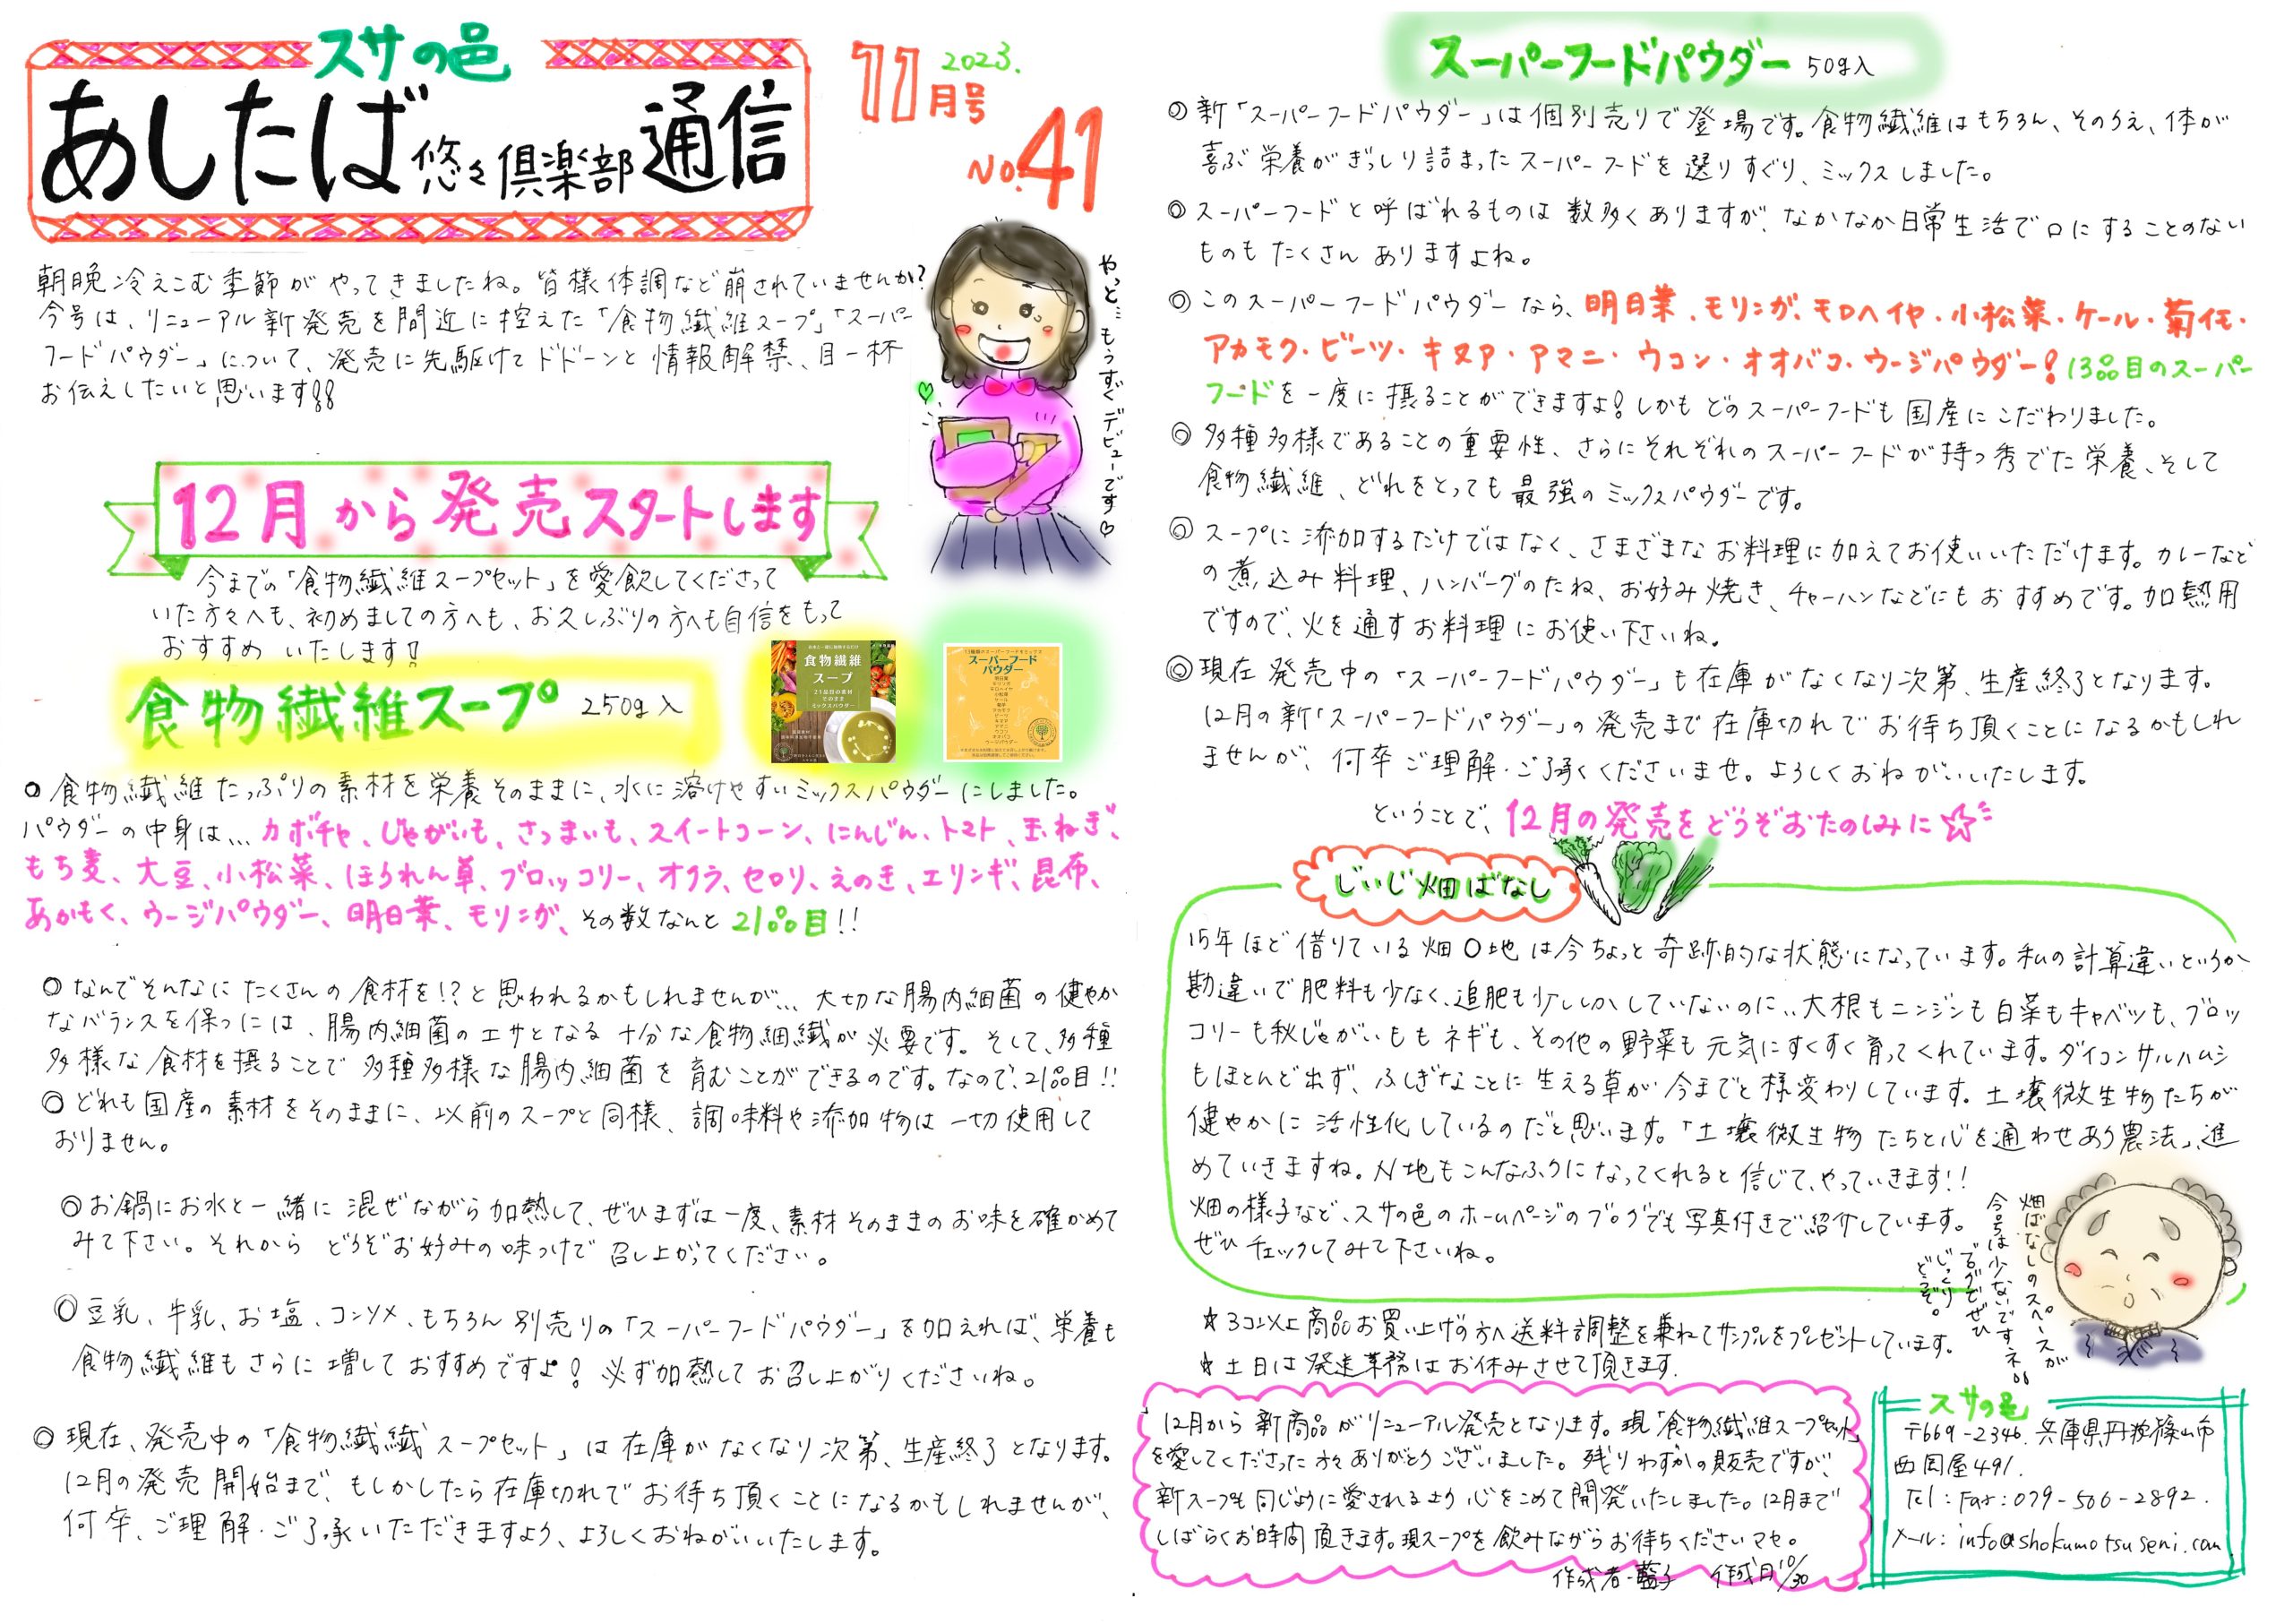 スサの邑
あしたば悠々倶楽部通信
2023.
11月号
No.41
朝晩冷えこむ季節がやってきましたね。皆様体調など崩されていませんか?
今号は、リニューアル新発売を間近に控えた「食物繊維スープ」「スーパー
フードパウダー」について、発売に先駆けてドドーンと情報解禁、目一杯
お伝えしたいと思います!!
やっと…もうすぐデビューです♡
12月から発売スタートします
今までの「食物繊維スープセット」を愛飲してくださって
いた方々へも、初めましての方へも、お久しぶりの方へも自信をもって
おすすめいたします!
食物繊維スープ 250g入
食物繊維
スープ
21品目の素材
そのまま
ミックスパウダー
スーパーフード
パウダー
◎食物繊維たっぷりの素材を栄養そのままに、水に溶けやすいミックスパウダーにしました。
パウダーの中身は… カボチャ、じゃがいも、さつまいも、スイートコーン、にんじん、トマト、玉ねぎ、
もち麦、大豆、小松菜、ほうれん草、ブロッコリー、オクラ、セロリ、えのき、エリンギ、昆布、
あかもく、ウージパウダー、明日葉、モリンガ、その数なんと21品目!!
◎なんでそんなにたくさんの食材を!?と思われるかもしれませんが… 大切な腸内細菌の健やか
なバランスを保つには、腸内細菌のエサとなる十分な食物細繊が必要です。そして、多種
多様な食材を摂ることで多種多様な腸内細菌を育むことができるのです。なので、21品目!!
◎どれも国産の素材をそのままに、以前のスープと同様、調味料や添加物は一切使用して
おりません。
◎お鍋にお水と一緒に混ぜながら加熱して、ぜひまずは一度、素材そのままのお味を確かめて
みて下さい。それからどうぞお好みの味つけで召し上がってください。
◎豆乳、牛乳、お塩、コンソメ、もちろん別売りの「スーパーフードパウダー」を加えれば、栄養も
食物繊維もさらに増しておすすめですよ!必ず加熱してお召し上がりくださいね。
◎現在、発売中の「食物繊繊スープセット」は在庫がなくなり次第、生産終了となります。
12月の発売開始まで、もしかしたら在庫切れでお待ち頂くことになるかもしれませんが、
何卒、ご理解・ご了承いただきますよう、よろしくおねがいいたします。
スーパーフードパウダー 50g入
◎新「スーパーフードパウダー」は個別売りで登場です。食物繊維はもちろん、そのうえ、体が
喜ぶ栄養がぎっしり詰まったスーパーフードを選りすぐり、ミックスしました。
◎スーパーフードと呼ばれるものは数多くありますが、なかなか日常生活で口にすることのない
ものもたくさんありますよね。
◎このスーパーフードパウダーなら、明日葉、モリンガ、モロヘイヤ・小松菜・ケール・菊イモ・
アカモク・ビーツ・キヌア・アマニ・ウコン・オオバコ・ウージパウダー!13品目のスーパー
フードを一度に摂ることができますよ!しかもどのスーパーフードも国産にこだわりました。
◎多種多様であることの重要性、さらにそれぞれのスーパーフードが持つ秀でた栄養、そして
食物繊維、どれをとっても最強のミックスパウダーです。
◎スープに添加するだけではなく、さまざまなお料理に加えてお使いいただけます。カレーなど
の煮込み料理、ハンバーグのたね、お好み焼き、チャーハンなどにもおすすめです。加熱用
ですので、火を通すお料理にお使い下さいね。
◎現在発売中の「スーパーフードパウダー」も在庫がなくなり次第、生産終了となります。
12月の新「スーパーフードパウダー」の発売まで在庫切れでお待ち頂くことになるかもしれ
ませんが、何卒ご理解・ご了承くださいませ。よろしくおねがいいたします。
ということで、12月の発売をどうぞおたのしみに☆
じいじ畑ばなし
15年ほど借りている畑O地は今ちょっと奇跡的な状態になっています。私の計算違いというか
勘違いで肥料も少なく、追肥も少ししかしていないのに… 大根もニンジンも白菜もキャベツも、ブロッ
コリーも秋じゃがいももネギも、その他の野菜も元気にすくすく育ってくれています。ダイコンサルハムシ
もほとんど出ず、ふしぎなことに生える草が今までと様変わりしています。土壌微生物たちが
健やかに活性化しているのだと思います。「土壌微生物たちと心を通わせあう農法」、進
めていきますね。N地もこんなふうになってくれると信じて、やっていきます!!
畑の様子など、スサの邑のホームページのブログでも写真付きで紹介しています。
ぜひチェックしてみて下さいね。
畑ばなしのスペースが
今号は少ないですネ。
ブログでぜひ
じっくり
どうぞ。
★3コ以上商品お買い上げの方へ送料調整を兼ねてサンプルをプレゼントしています。
★土日は発送業務はお休みさせて頂きます。
12月から新商品がリニューアル発売となります。現「食物繊維スープセット」
を愛してくださった方々ありがとうございました。残りわずかの販売ですが、
新スープも同じように愛されるよう心をこめて開発いたしました。12月まで
しばらくお時間頂きます。現スープを飲みながらお待ちくださいマセ。
作成者・藍子 作成日10/30
スサの邑
〒669-2346. 兵庫県丹波篠山市
西岡屋491.
Tel:Fax:079-506-2892.
メール:info@shokumotsuseni.com